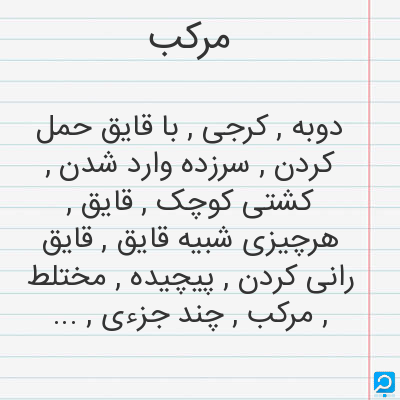 مرکب
دوبه , کرجی , با قایق حمل
کردن , سرزده وارد شدن ,
کشتی کوچک , قایق ,
هرچیزی شبیه قایق , قایق
رانی کردن , پیچیده , مختلط
, مرکب , چند جزءی , ...